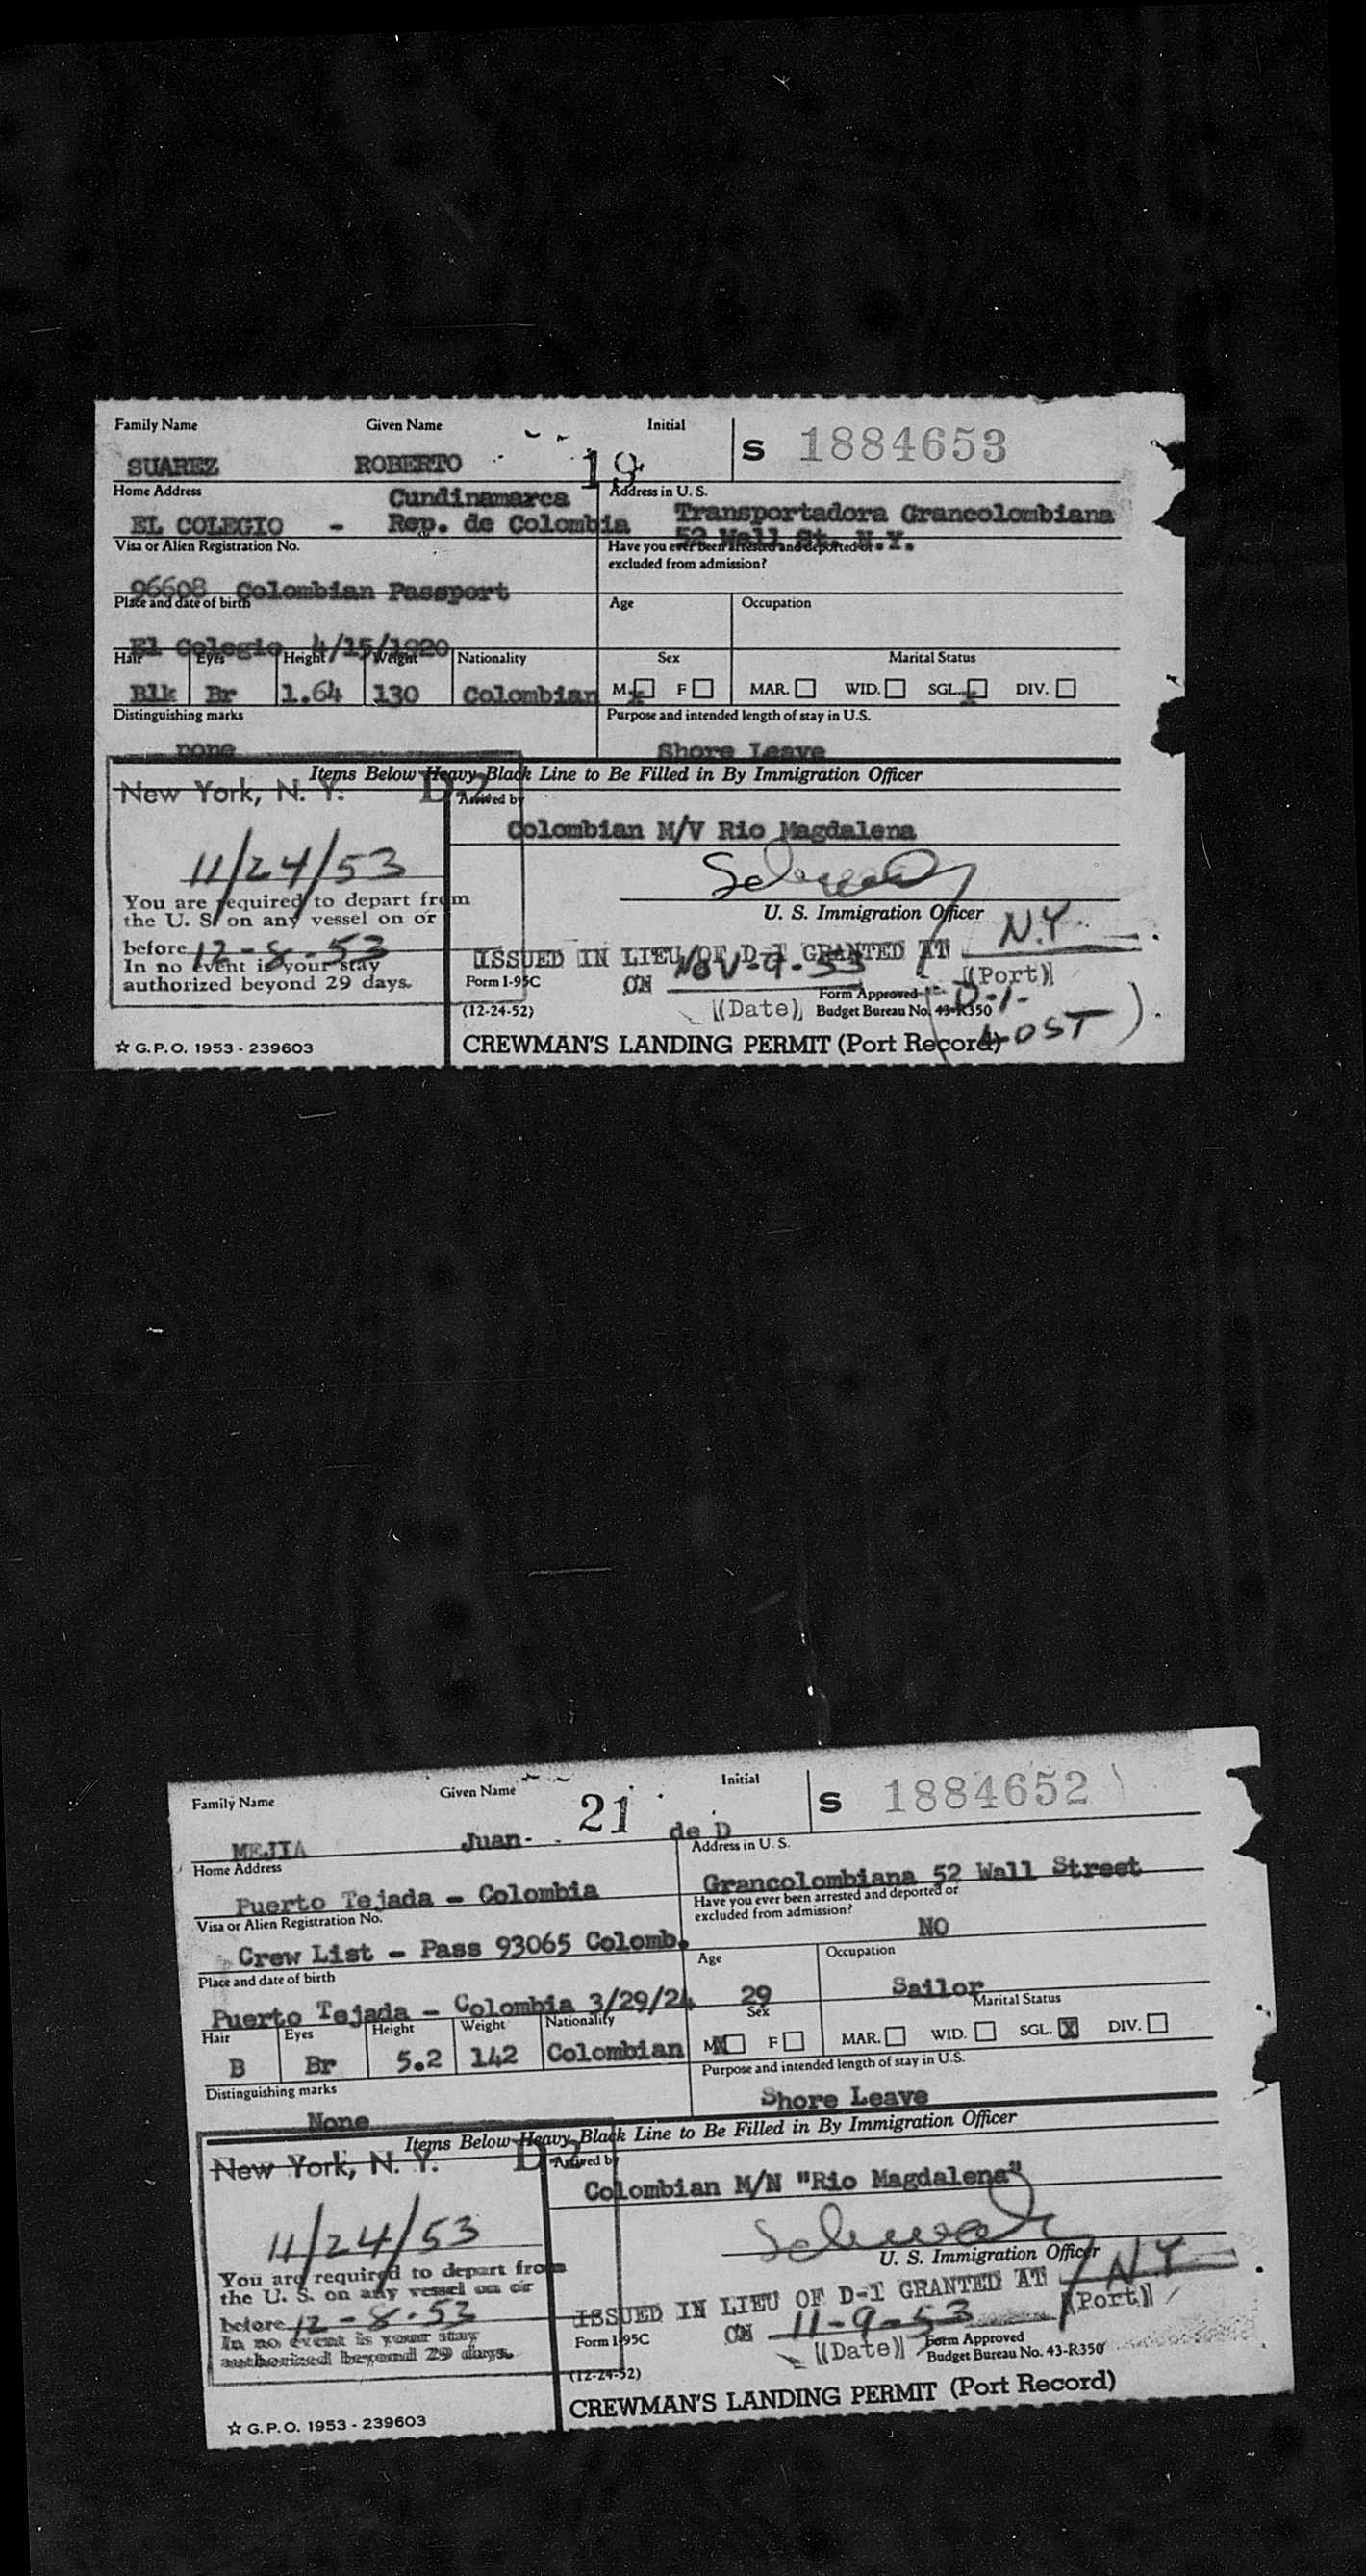 Family Name Given Name Initial S 1884653
SUAREZ ROBERTO 19
Home Address Cundinamarca Address in U. S.
EL COLEGIO - Rep. de Colombia Transportadora Grancolombiana
52 Wall St. N.Y.
Visa or Alien Registration No. Have you ever been arrested and deported or
excluded from admission?
96608 Colombian Passport
Place and date of birth Age Occupation
El Colegio 4/15/1920
Hair Eyes Height Weight Nationality Sex Marital Status
Blk Br 1.64 130 Colombian M. x F MAR. WID. SGL. x DIV.
Distinguishing marks Purpose and intended length of stay in U.S.
none Shore Leave
Items Below Heavy Black Line to Be Filled in By Immigration Officer
New York, N. Y. D-2 Arrived by
Colombian M/V Rio Magdalena
11/24/53
You are required to depart from
the U. S. on any vessel on or
before 12-8-53
In no event is your stay
authorized beyond 29 days.
U. S. Immigration Officer
ISSUED IN LIEU OF D-1 GRANTED AT N.Y.
(Port)
ON NOV-9-53
(Date)
Form I-95C Form Approved
(12-24-52) Budget Bureau No. 43-R350
(D-1-
LOST).
☆ G.P.O. 1953 - 239603 CREWMAN'S LANDING PERMIT (Port Record)
Family Name Given Name Initial S 1884652
MEJIA Juan- 21 de D
Home Address Address in U. S.
Puerto Tejada - Colombia Grancolombiana 52 Wall Street
Visa or Alien Registration No. Have you ever been arrested and deported or
excluded from admission?
Crew List - Pass 93065 Colomb. NO
Place and date of birth Age Occupation
Puerto Tejada - Colombia 3/29/24 29 Sailor
Hair Eyes Height Weight Nationality Sex Marital Status
B Br 5.2 142 Colombian M X F MAR. WID. SGL. X DIV.
Distinguishing marks Purpose and intended length of stay in U.S.
None Shore Leave
Items Below Heavy Black Line to Be Filled in By Immigration Officer
New York, N. Y. D-2 Arrived by
Colombian M/N "Rio Magdalena"
11/24/53
You are required to depart from
the U. S. on any vessel on or
before 12-8-53
In no event is your stay
authorized beyond 29 days.
U. S. Immigration Officer
ISSUED IN LIEU OF D-1 GRANTED AT N.Y.
(Port)
ON 11-9-53
(Date)
Form I-95C Form Approved
(12-24-52) Budget Bureau No. 43-R350
☆ G.P.O. 1953 - 239603 CREWMAN'S LANDING PERMIT (Port Record)